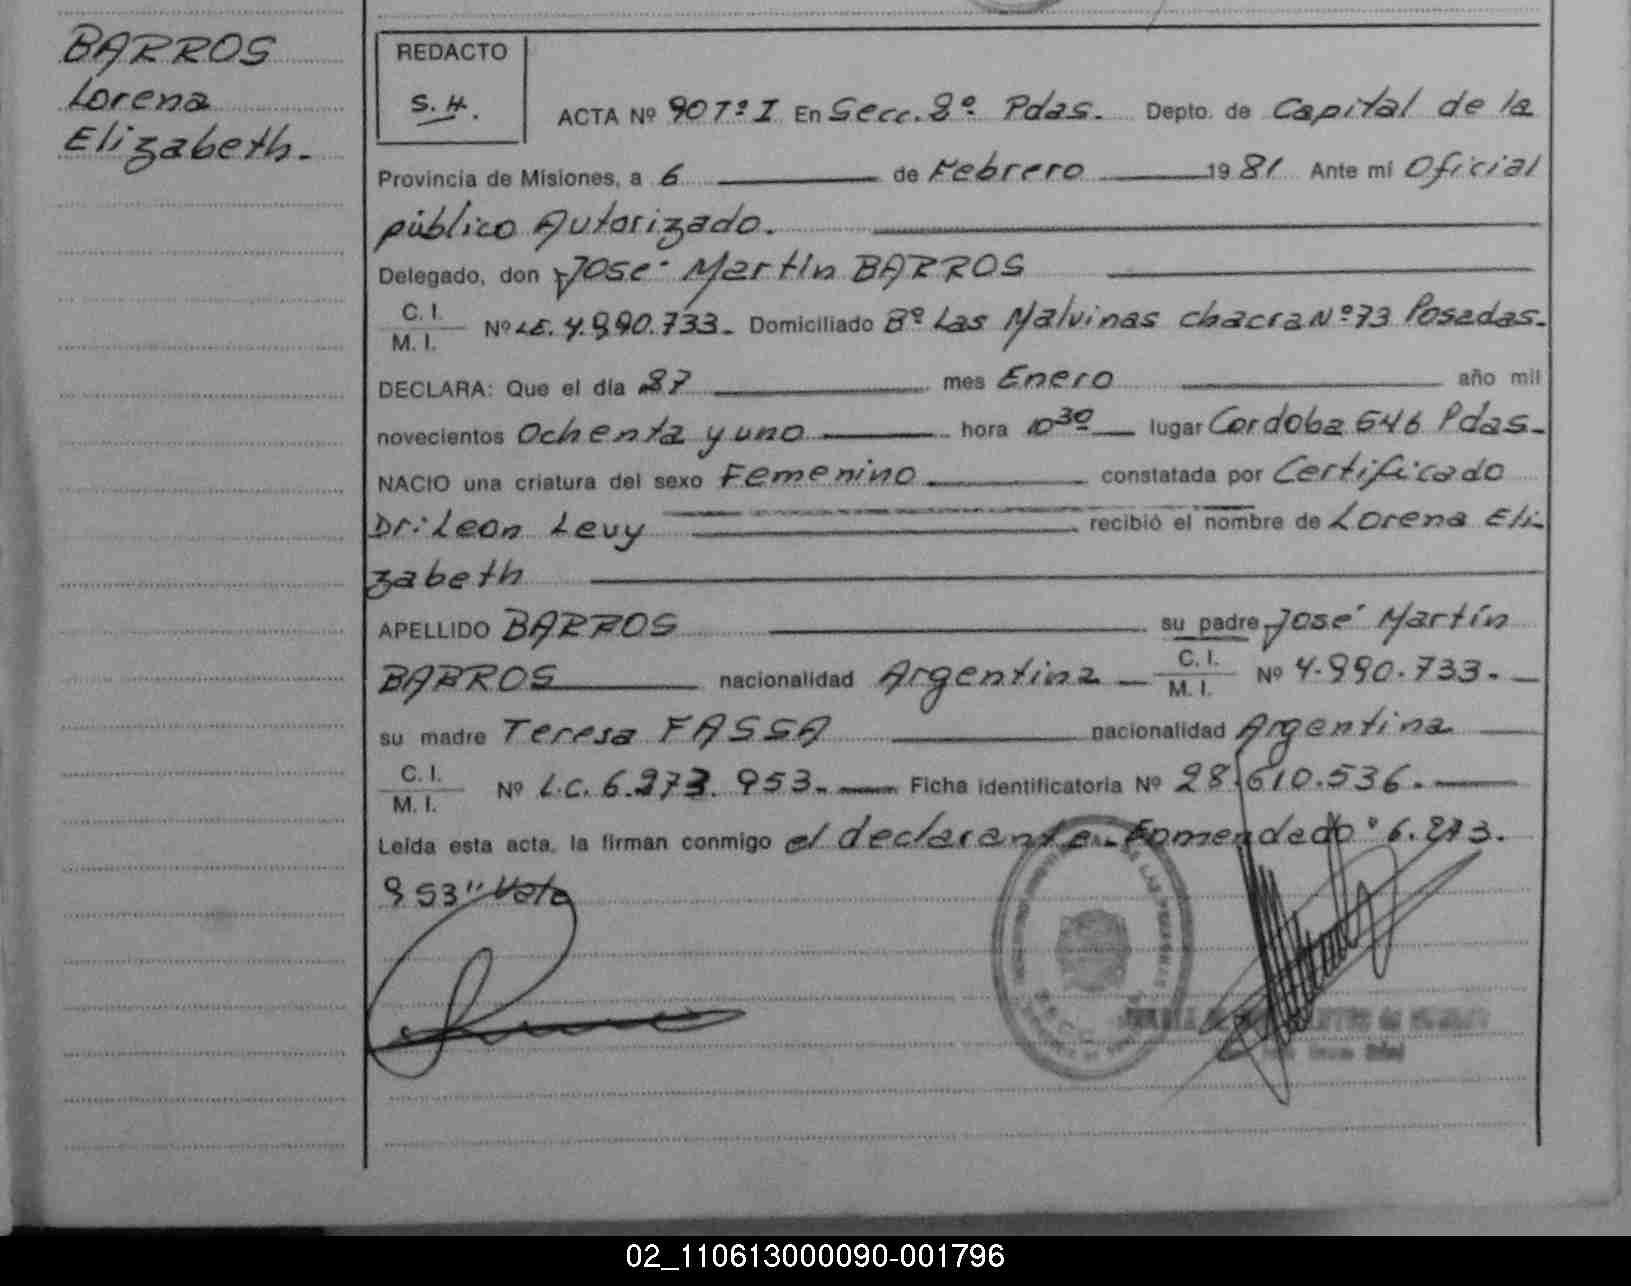 BARROS
Lorena
Elizabeth.
REDACTO
S.H.
ACTA Nº 907ºI En Secc. 8º Pdas. Depto. de Capital de la
Provincia de Misiones, a 6 de Febrero 1981 Ante mi Oficial
público Autorizado.
Delegado, don José Martín BARROS
C. I.
M. I. Nº LE. 4.990.733. Domiciliado Bº Las Malvinas chacra Nº 73 Posadas.
DECLARA: Que el día 27 mes Enero año mil
novecientos Ochenta y uno hora 10 30 lugar Cordoba 646 Pdas.
NACIO una criatura del sexo Femenino constatada por Certificado
Dr: Leon Levy recibió el nombre de Lorena Eli
zabeth
APELLIDO BARROS su padre José Martín
BARROS nacionalidad Argentina C. I.
M. I. Nº 4.990.733.
su madre Teresa FASSA nacionalidad Argentina
C. I.
M. I. Nº L.C. 6.273.953. Ficha identificatoria Nº 28.610.536.
Leída esta acta, la firman conmigo el declarante. Enmendado "6.273.
953" Vale
02_110613000090-001796